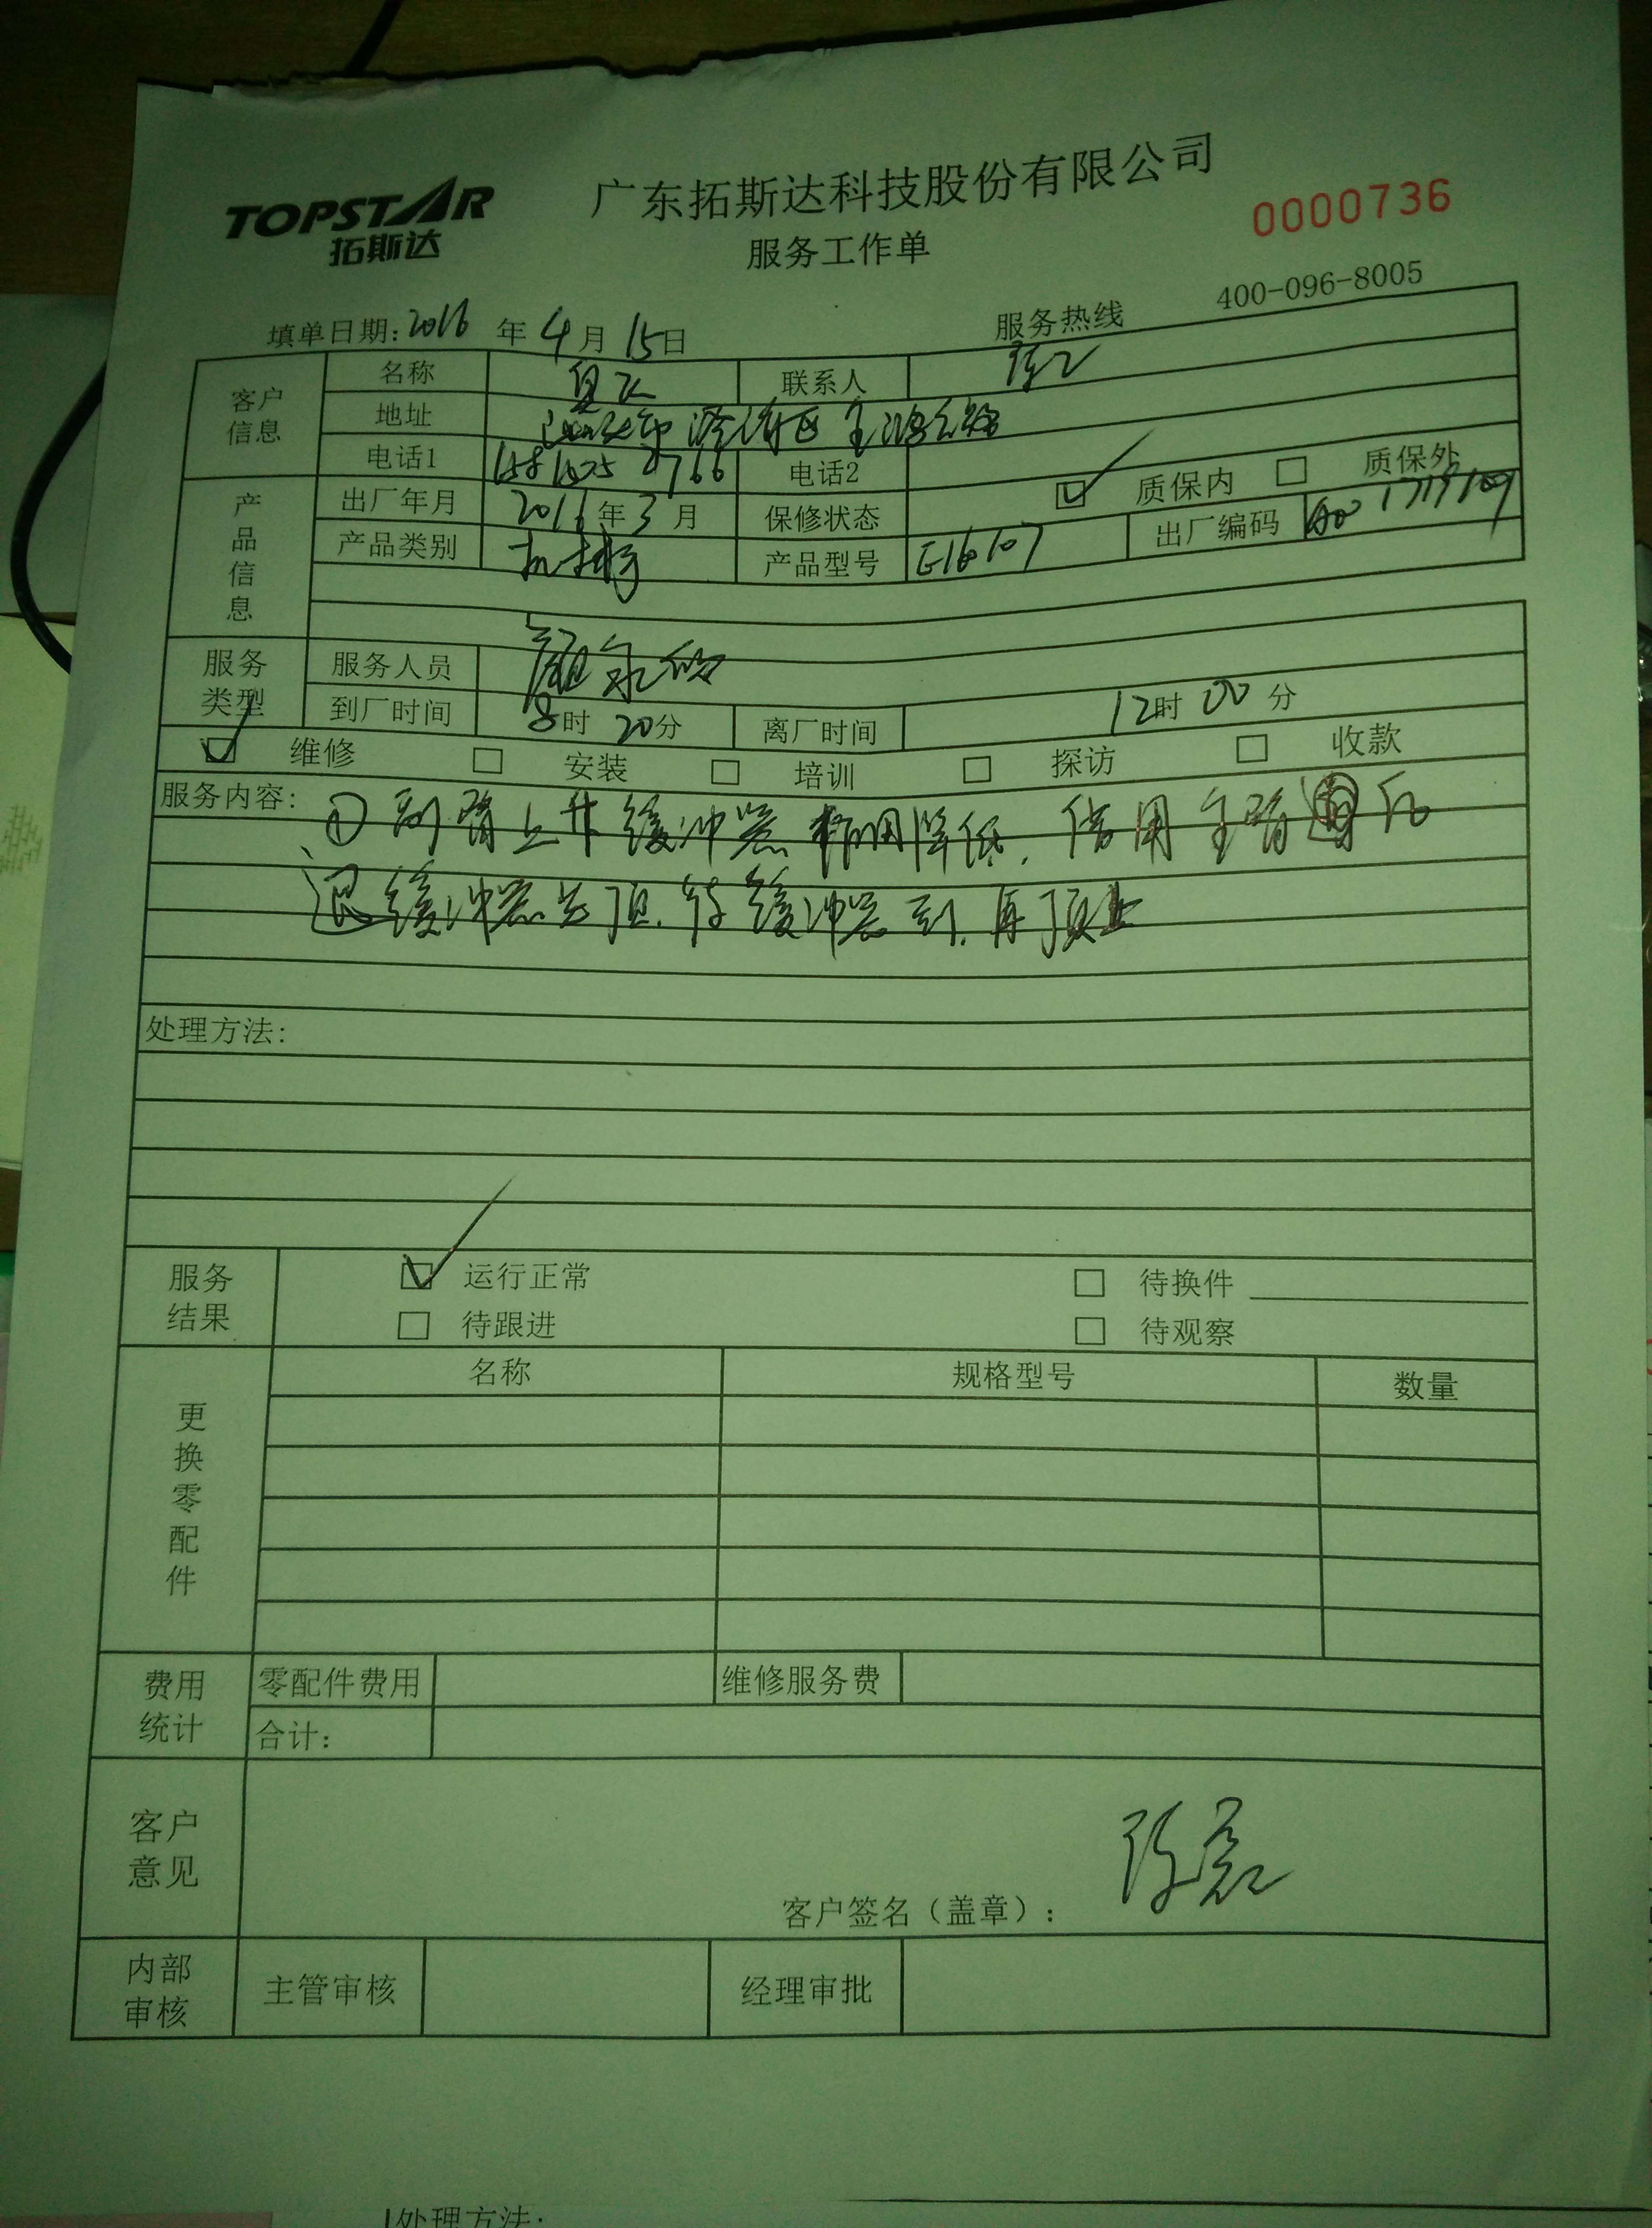 TOPSTAR
拓斯达
广东拓斯达科技股份有限公司
0000736
服务工作单
填单日期: 2016 年 4 月 15 日
服务热线 400-096-8005
客户信息
名称
联系人
地址
电话1
电话2
产品信息
出厂年月 2016 年 3 月
保修状态 质保内 质保外
产品类别 机械手
产品型号
出厂编码
服务类型
服务人员
到厂时间 8时 20分
离厂时间 12时 00分
维修 安装 培训 探访 收款
服务内容: ① 副臂上升缓冲器 降低. 借用主臂
退缓冲器 顶. 待缓冲器到. 再顶上
处理方法:
服务结果
运行正常 待换件
待跟进 待观察
更换零配件
名称 规格型号 数量
费用统计
零配件费用 维修服务费
合计:
客户意见
客户签名（盖章）:
内部审核
主管审核 经理审批
处理方法: